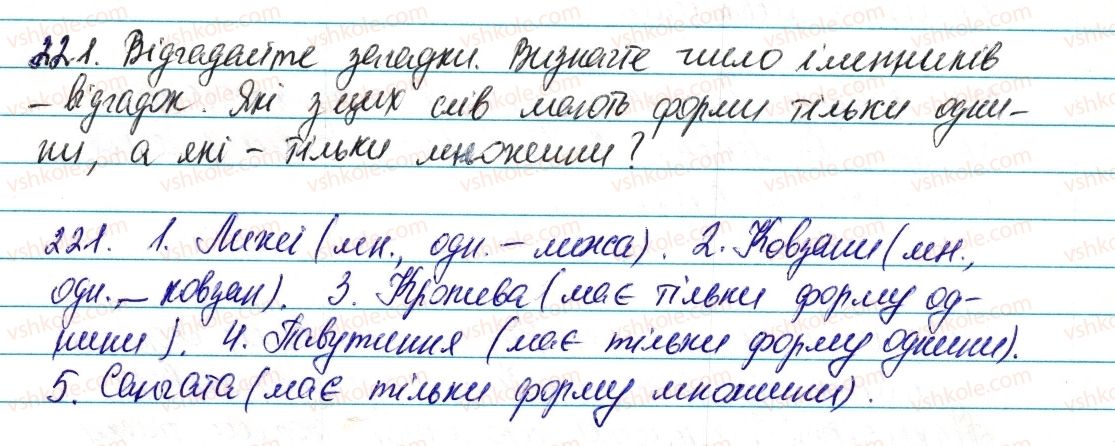 221. Відгадайте загадки. Визначте число іменників
– відгадок. Які з цих слів мають форми тільки одни-
ни, а які – тільки множини?
221. 1. Лижі (мн., одн. – лижа). 2. Ковзани (мн.,
одн. – ковзан). 3. Кропива (має тільки форму од-
нини). 4. Павутиння (має тільки форму однини).
5. Санчата (має тільки форму множини).